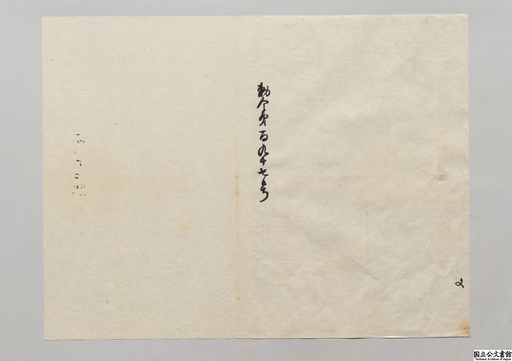 勅令第百九十七号
国立公文書館
National Archives of Japan